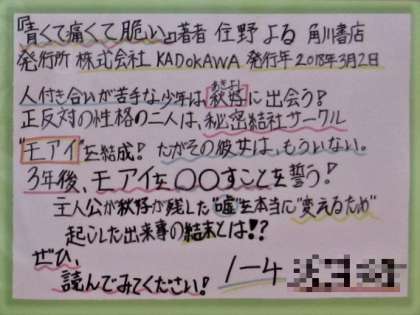 『青くて痛くて脆い』著者 住野よる 角川書店
発行所 株式会社 KADOKAWA 発行年 2018年3月2日
人付き合いが苦手な少年は、秋好に出会う！
あきよし
正反対の性格の二人は、秘密結社サークル
"モアイ"を結成！だがその彼女は、もういない。
3年後、モアイを〇〇すことを誓う！
主人公が秋好が残した"嘘"を本当に"変えるため"
起こした出来事の結末とは!?
ぜひ、
読んでみてください！ 1-4